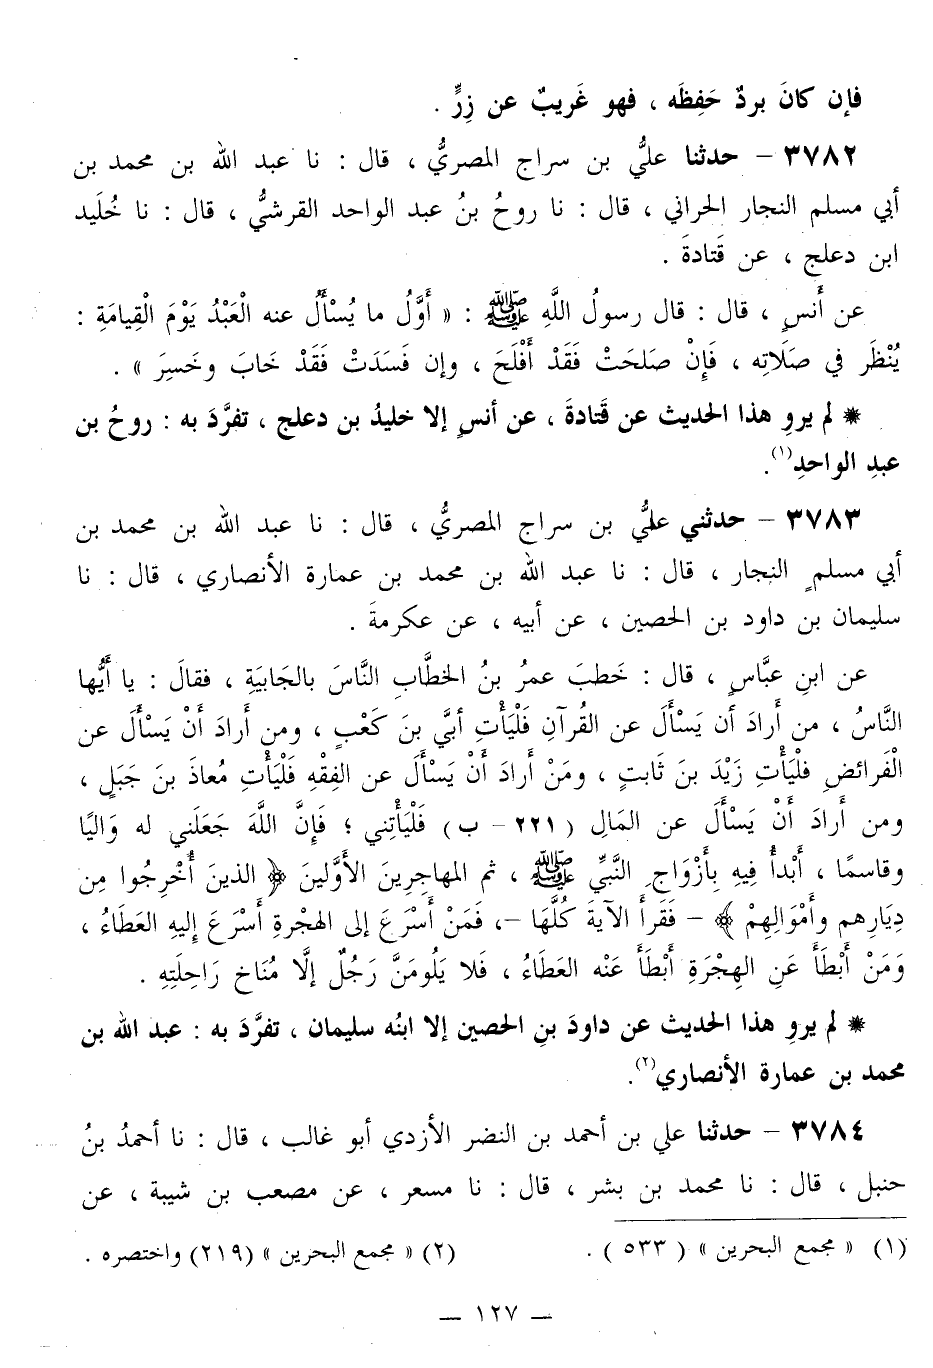 فإن كانَ بردٌ حَفِظَه ، فهو غَريبٌ عن زِرٍّ .
٣٧٨٢ – حدثنا عليُّ بن سراج المصريُّ ، قال : نا عبد الله بن محمد بن
أبي مسلم النجار الحراني ، قال : نا روحُ بنُ عبد الواحد القرشيُّ ، قال : نا خُلَيد
ابن دعلج ، عن قَتادةَ .
عن أَنسٍ ، قال : قال رسولُ اللَّهِ ﷺ : « أَوَّلُ ما يُسْأَلُ عنه الْعَبْدُ يَوْمَ الْقِيامَةِ :
يُنْظَر في صَلَاتِه ، فَإِنْ صَلحَتْ فَقَدْ أَفْلَحَ ، وإن فَسَدَتْ فَقَدْ خَابَ وخَسِرَ » .
* لم يروِ هذا الحديث عن قَتادةَ ، عن أنسٍ إلا خليدُ بن دعلج ، تفرَّدَ به : روحُ بن
عبدِ الواحدِ(١).
٣٧٨٣ – حدثني عليُّ بن سراج المصريُّ ، قال : نا عبد الله بن محمد بن
أبي مسلمٍ النجار ، قال : نا عبد الله بن محمد بن عمارة الأنصاري ، قال : نا
سليمان بن داود بن الحصين ، عن أبيه ، عن عكرمةَ .
عن ابنِ عبَّاسٍ ، قال : خَطبَ عمرُ بنُ الخطَّابِ النَّاسَ بالجَابيَةِ ، فقالَ : يا أَيُّها
النَّاسُ ، من أَرادَ أن يَسْأَلَ عن القُرآنِ فَلْيَأْتِ أُبيَّ بنَ كَعْبٍ ، ومن أَرادَ أَنْ يَسْأَلَ عن
الْفَرائضِ فلْيَأْتِ زَيْدَ بنَ ثَابتٍ ، ومَنْ أَرادَ أَنْ يَسْأَلَ عن الفِقْهِ فَلْيَأْتِ مُعاذَ بنَ جَبَلٍ ،
ومن أَرادَ أَنْ يَسْأَلَ عن المَالِ ( ٢٢١ – ب ) فَلْيَأْتِني ؛ فَإِنَّ اللَّهَ جَعَلَني له وَاليًا
وقاسمًا ، أَبْدأُ فِيهِ بِأَزْوَاجِ النَّبِيِّ ﷺ ، ثم المهاجِرِينَ الأَوَّلينَ ﴿ الذينَ أُخْرِجُوا مِن
دِيَارِهم وأَمْوَالِهِمْ ﴾ – فَقَرأَ الآيةَ كُلَّهَا –، فَمَنْ أَسْرَعَ إلى الهجْرةِ أَسْرَعَ إِليهِ العَطَاءُ ،
وَمَنْ أَبْطَأَ عَنِ الهِجْرَةِ أَبْطَأَ عَنْه العَطَاءُ ، فَلا يَلُومَنَّ رَجُلٌ إلَّا مُنَاخ رَاحِلَتِهِ .
* لم يروِ هذا الحديث عن داودَ بنِ الحصين إلا ابنُه سليمان ، تفرَّدَ به : عبد الله بن
محمد بن عمارة الأنصاري(٢).
٣٧٨٤ – حدثنا علي بن أحمد بن النضر الأزدي أبو غالب ، قال : نا أحمدُ بنُ
حنبل ، قال : نا محمد بن بشر ، قال : نا مسعر ، عن مصعب بن شيبة ، عن
(١) « مجمع البحرين » ( ٥٣٣ ) . (٢) « مجمع البحرين » (٢١٩) واختصره .
— ١٢٧ —